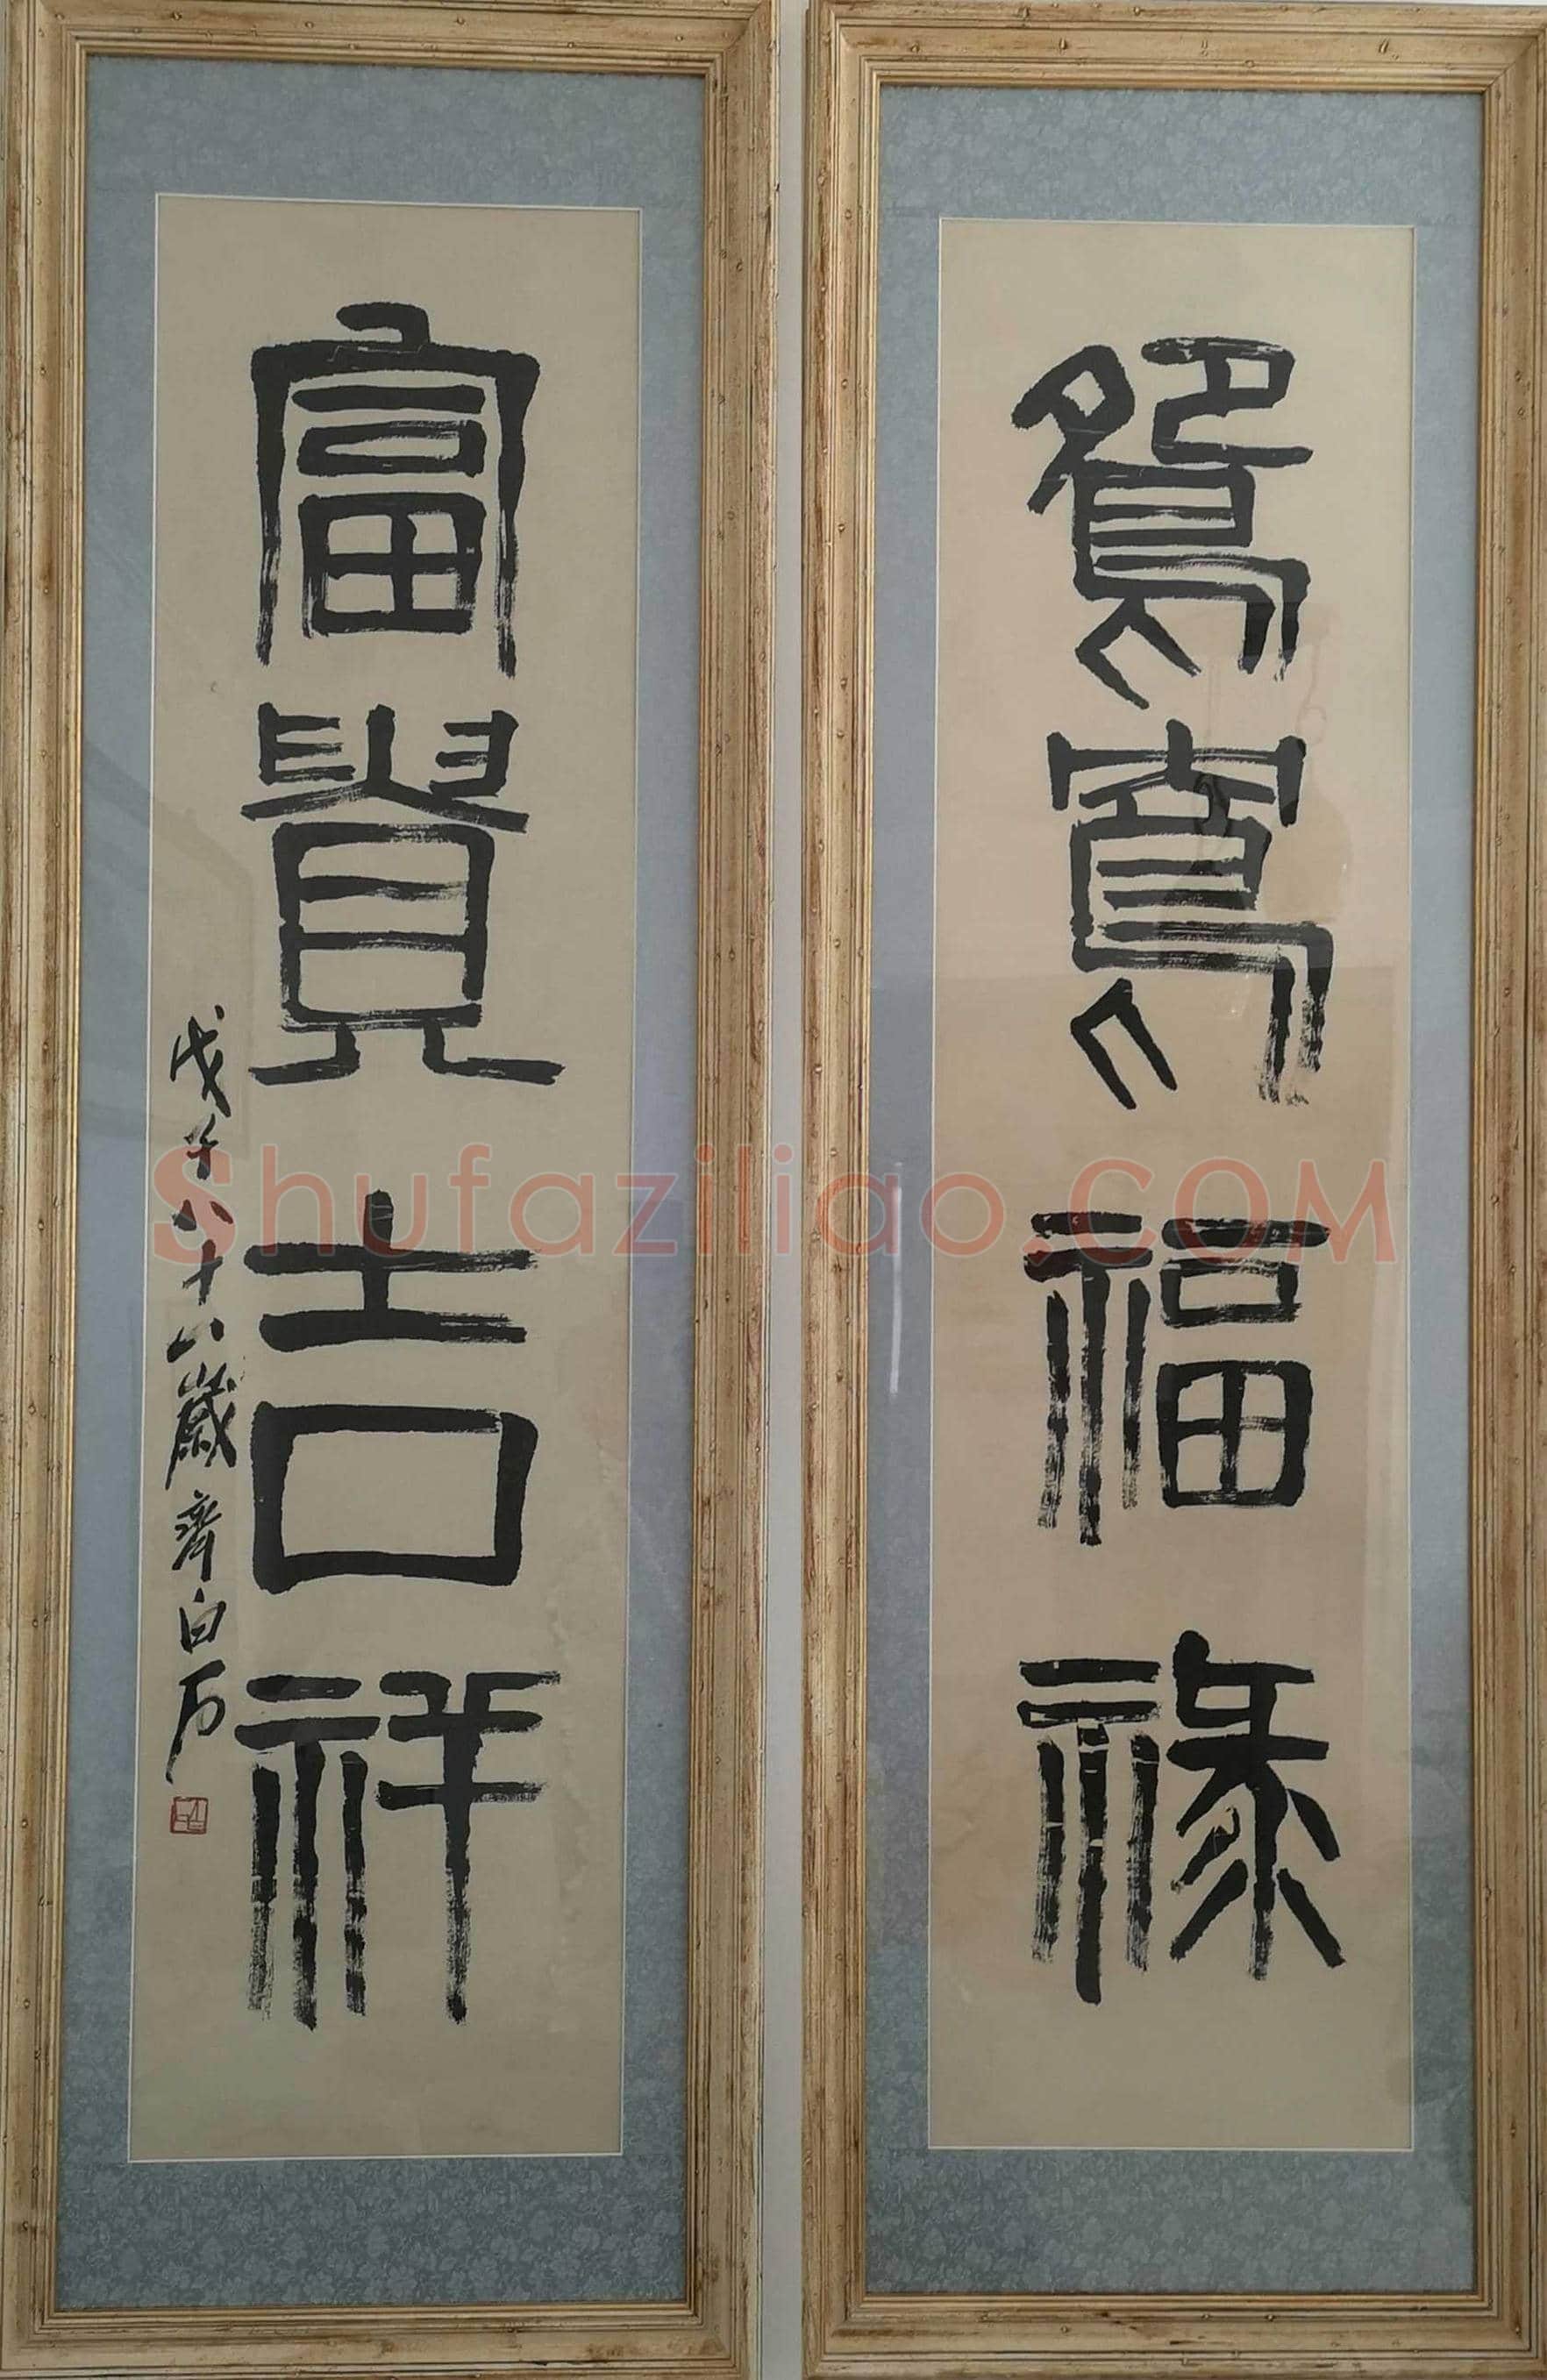 鴛鴦福祿
富貴吉祥
戊子八十八歲齊白石
Shufaziliao.COM